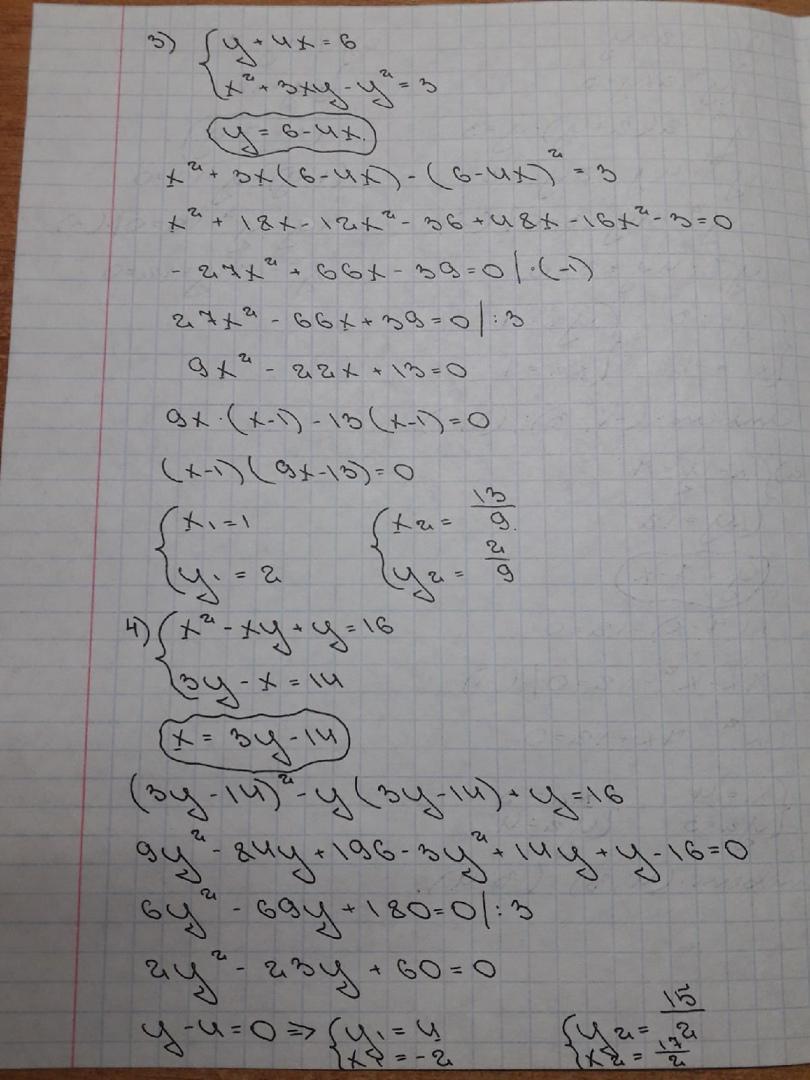 3) { y + 4x = 6
x² + 3xy - y² = 3
y = 6 - 4x.
x² + 3x(6 - 4x) - (6 - 4x)² = 3
x² + 18x - 12x² - 36 + 48x - 16x² - 3 = 0
- 27x² + 66x - 39 = 0 | ·(-1)
27x² - 66x + 39 = 0 | : 3
9x² - 22x + 13 = 0
9x · (x - 1) - 13(x - 1) = 0
(x - 1)(9x - 13) = 0
{ x₁ = 1 { x₂ = 13/9
y₁ = 2 y₂ = 2/9
4) { x² - xy + y = 16
3y - x = 14
x = 3y - 14
(3y - 14)² - y(3y - 14) + y = 16
9y² - 84y + 196 - 3y² + 14y + y - 16 = 0
6y² - 69y + 180 = 0 | : 3
2y² - 23y + 60 = 0
y - 4 = 0 => { y₁ = 4 { y₂ = 15/2
x₁ = -2 x₂ = 17/2